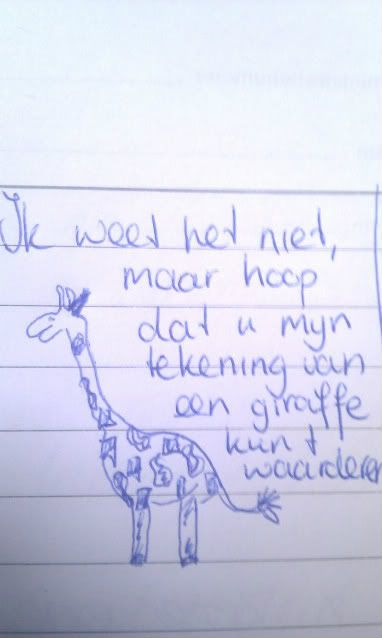 Ik weet het niet,
maar hoop
dat u mijn
tekening van
een giraffe
kunt
waarderen